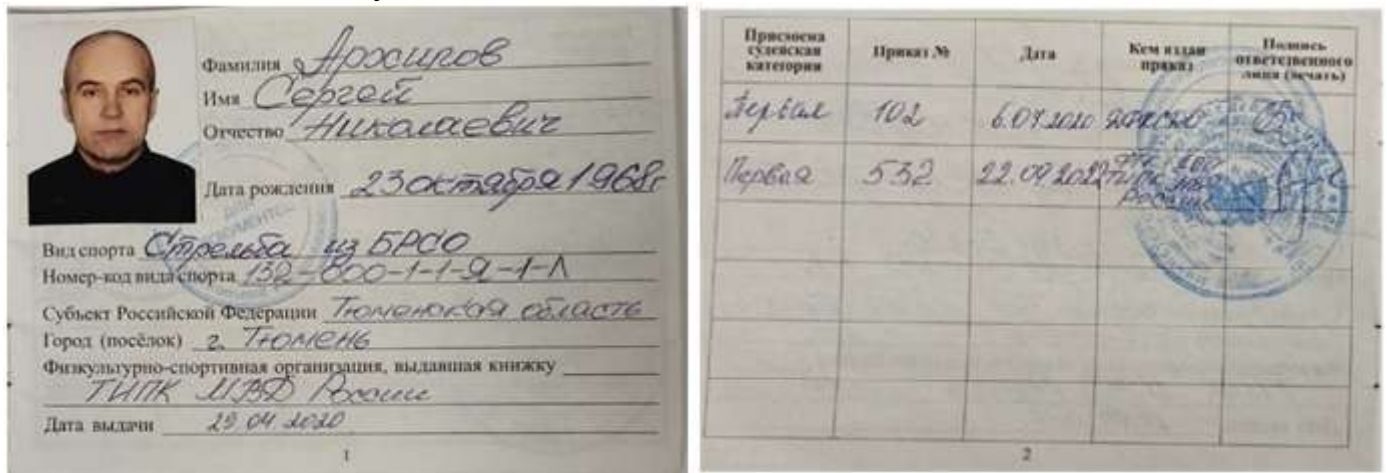 Фамилия Архипов
Имя Сергей
Отчество Николаевич
Дата рождения 23 октября 1968г
Вид спорта Стрельба из БРСО
Номер-код вида спорта 132-000-1-1-Я-1-Л
Субъект Российской Федерации Тюменская область
Город (посёлок) г. Тюмень
Физкультурно-спортивная организация, выдавшая книжку
ТИПК МВД России
Дата выдачи 29 04 2020
1
Присвоена судейская категория
Приказ №
Дата
Кем издан приказ
Подпись ответственного лица (печать)
Первая 102 6.07.2020
Первая 532 22.09.2022 России
2